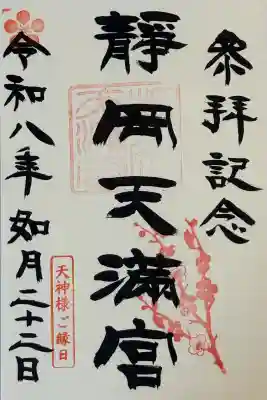 参拝記念
靜岡天満宮
令和八年如月二十二日
天神様ご縁日